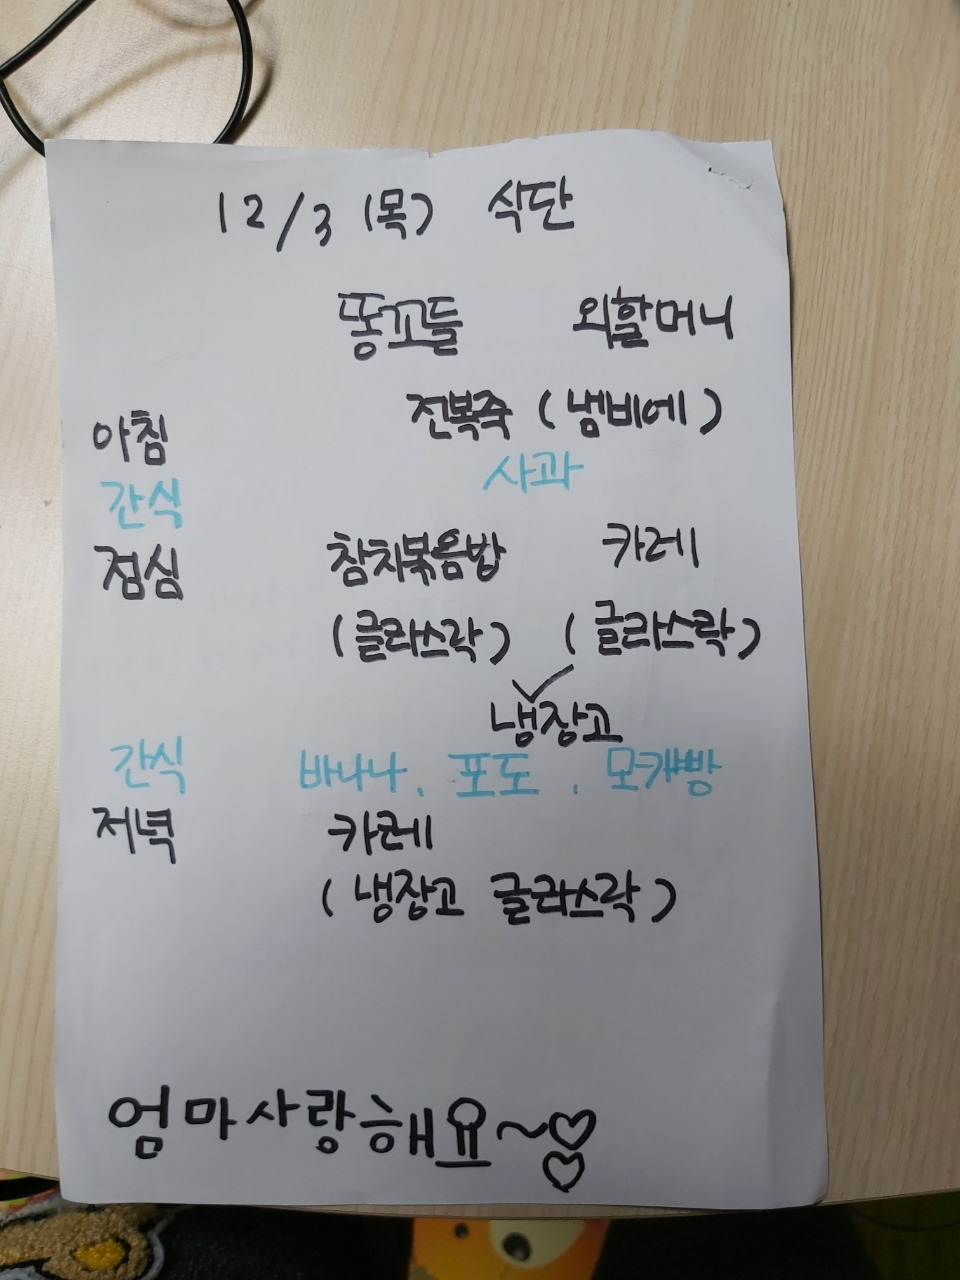 12/3 (목) 식단
똥꼬들 외할머니
아침 전복죽 (냄비에)
간식 사과
점심 참치볶음밥 카레
(글라스락) (글라스락)
냉장고
간식 바나나, 포도, 모캬빵
저녁 카레
(냉장고 글라스락)
엄마사랑해요~♡♡